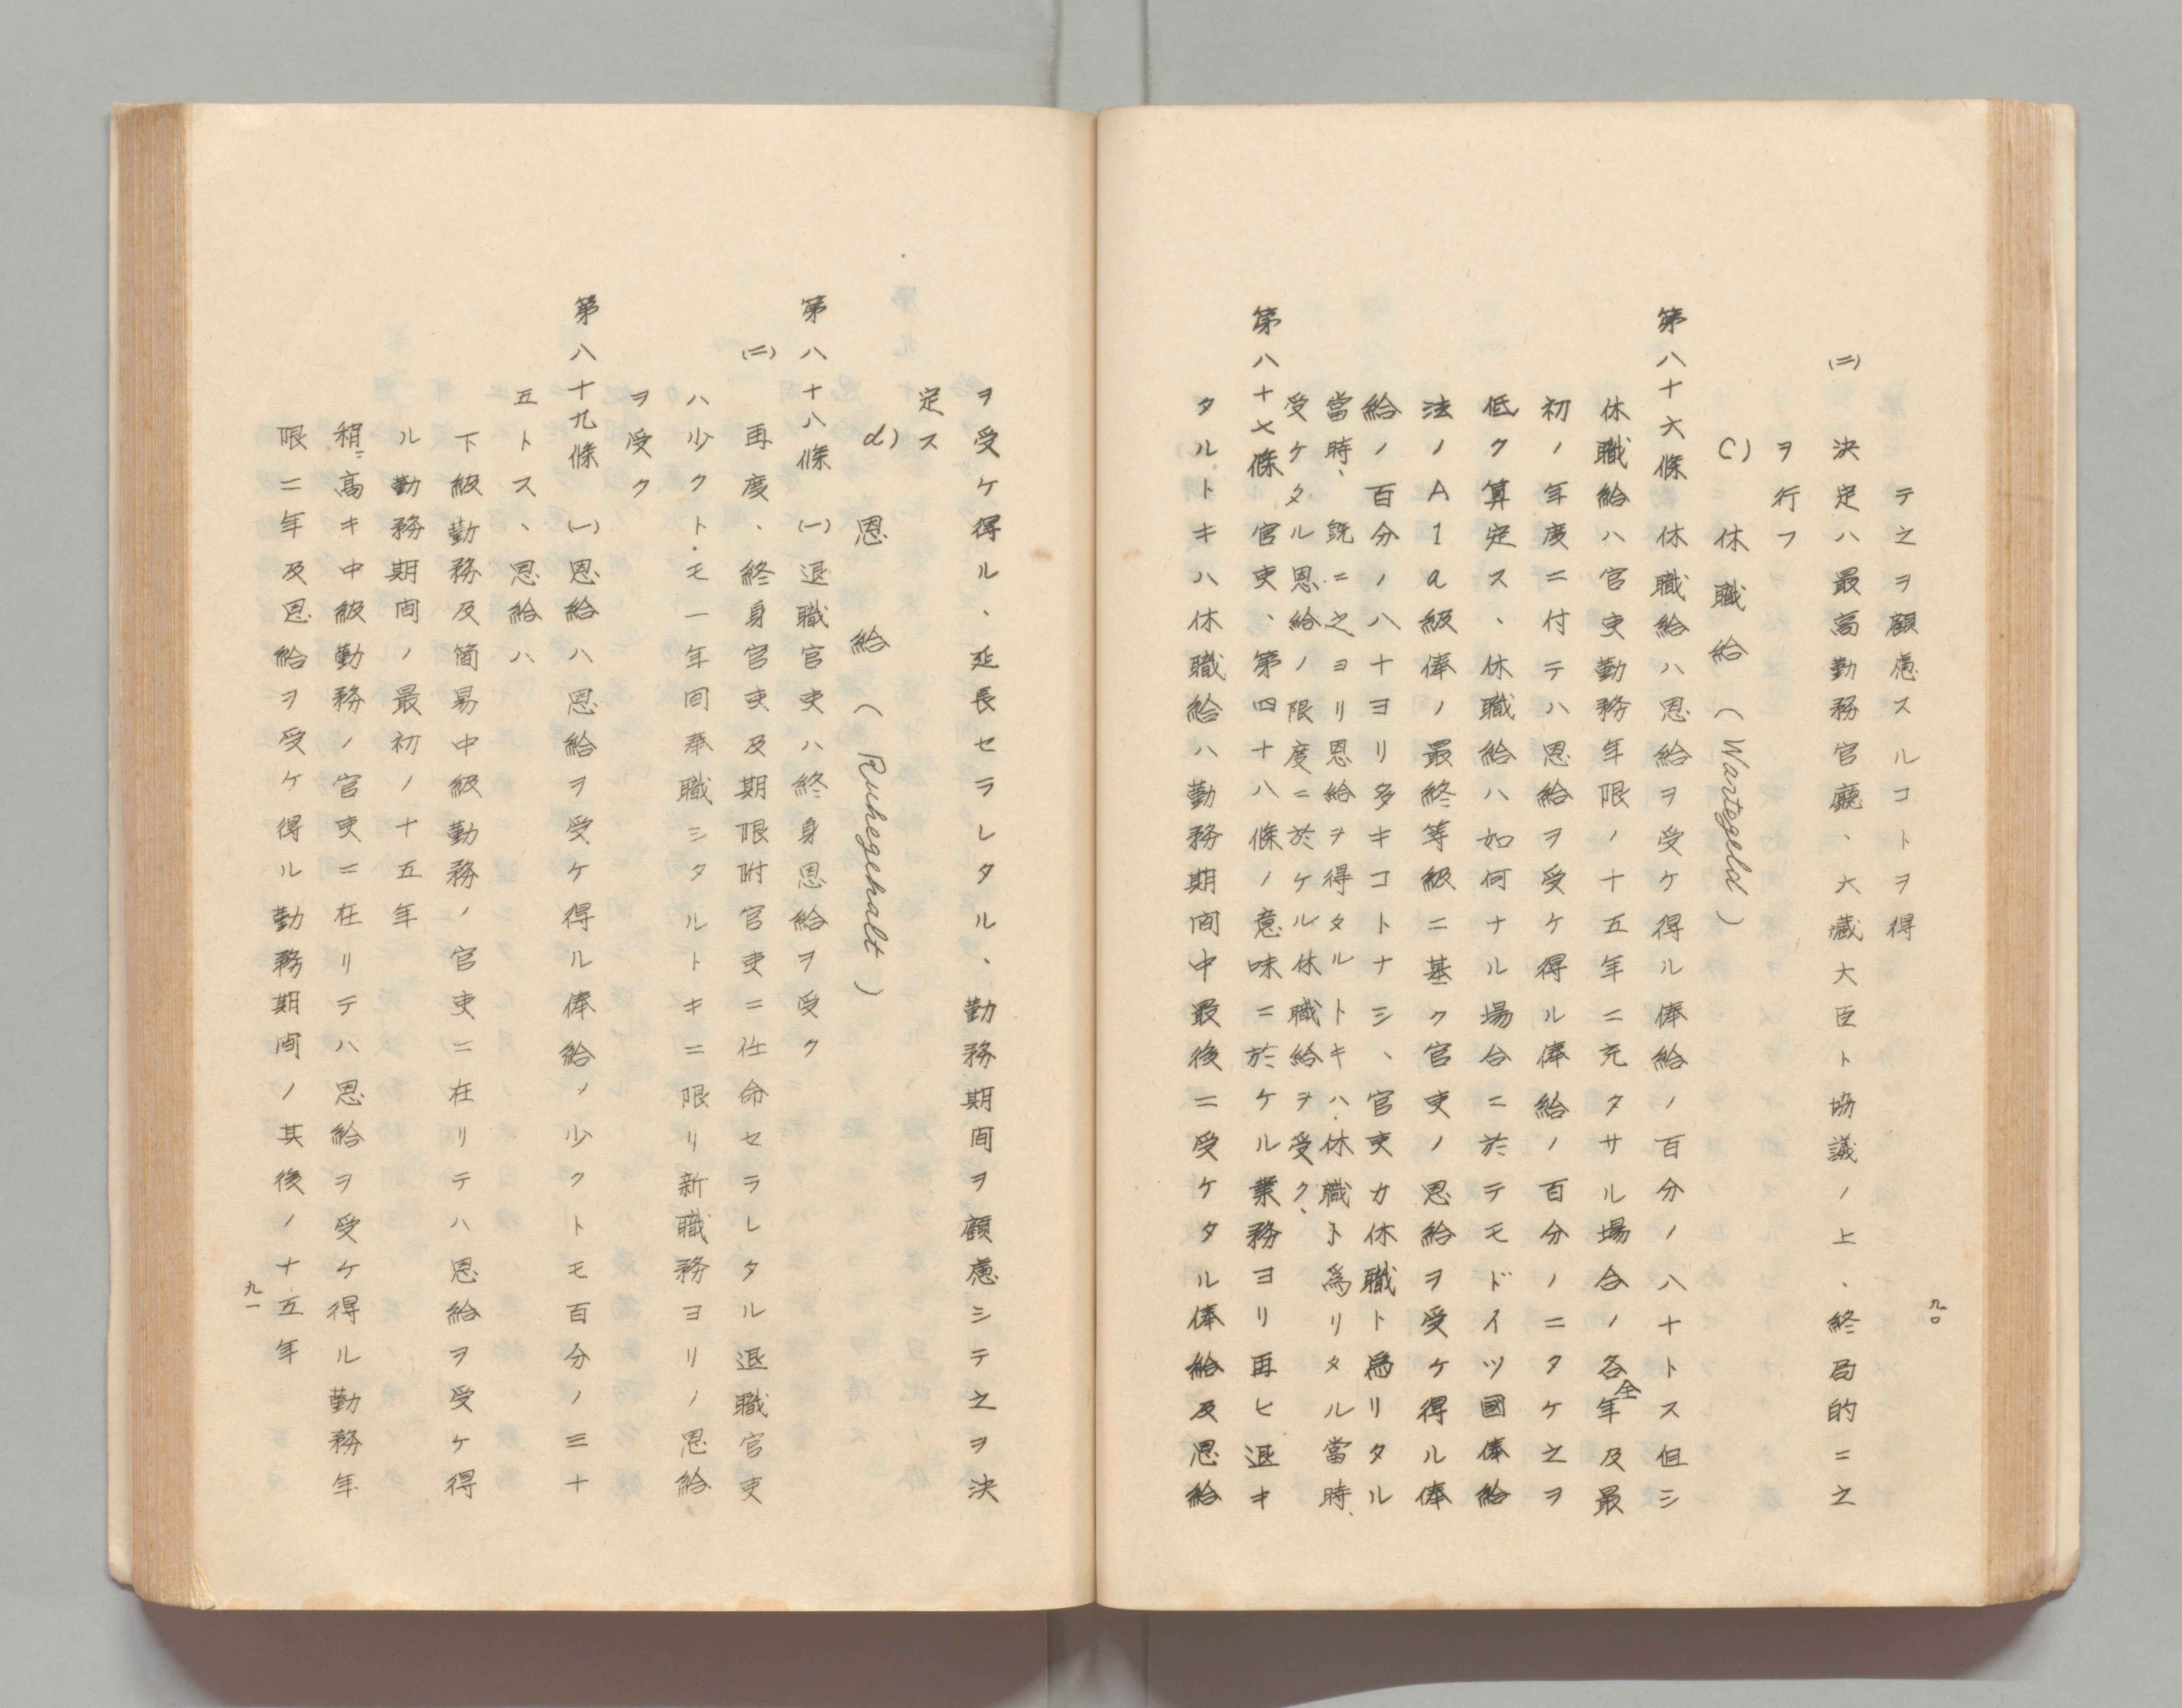 九〇
テ之ヲ顧慮スルコトヲ得
(二) 決定ハ最高勤務官廳、大藏大臣ト協議ノ上、終局的ニ之
ヲ行フ
C) 休職給 (Wartegeld)
第八十六條 休職給ハ恩給ヲ受ケ得ル俸給ノ百分ノ八十トス但シ
休職給ハ官吏勤務年限ノ十五年ニ充タサル場合ノ各全年及最
初ノ年度ニ付テハ恩給ヲ受ケ得ル俸給ノ百分ノ二タケ之ヲ
低ク算定ス、休職給ハ如何ナル場合ニ於テモドイツ國俸給
法ノA1a級俸ノ最終等級ニ基ク官吏ノ恩給ヲ受ケ得ル俸
給ノ百分ノ八十ヨリ多キコトナシ、官吏カ休職ト爲リタル
當時、既ニ之ヨリ恩給ヲ得タルトキハ、休職ト爲リタル當時、
受ケタル恩給ノ限度ニ於ケル休職給ヲ受ク、
第八十七條 官吏、第四十八條ノ意味ニ於ケル業務ヨリ再ヒ退キ
タルトキハ休職給ハ勤務期間中最後ニ受ケタル俸給及恩給
ヲ受ケ得ル、延長セラレタル、勤務期間ヲ顧慮シテ之ヲ決
定ス
d) 恩給 (Ruhegehalt)
第八十八條 (一)退職官吏ハ終身恩給ヲ受ク
(二) 再度、終身官吏及期限附官吏ニ任命セラレタル退職官吏
ハ少クトモ一年間奉職シタルトキニ限リ新職務ヨリノ恩給
ヲ受ク
第八十九條 (一)恩給ハ恩給ヲ受ケ得ル俸給ノ少クトモ百分ノ三十
五トス、恩給ハ
下級勤務及簡易中級勤務ノ官吏ニ在リテハ恩給ヲ受ケ得
ル勤務期間ノ最初ノ十五年
稍〻高キ中級勤務ノ官吏ニ在リテハ恩給ヲ受ケ得ル勤務年
限ニ年及恩給ヲ受ケ得ル勤務期間ノ其後ノ十五年
九一